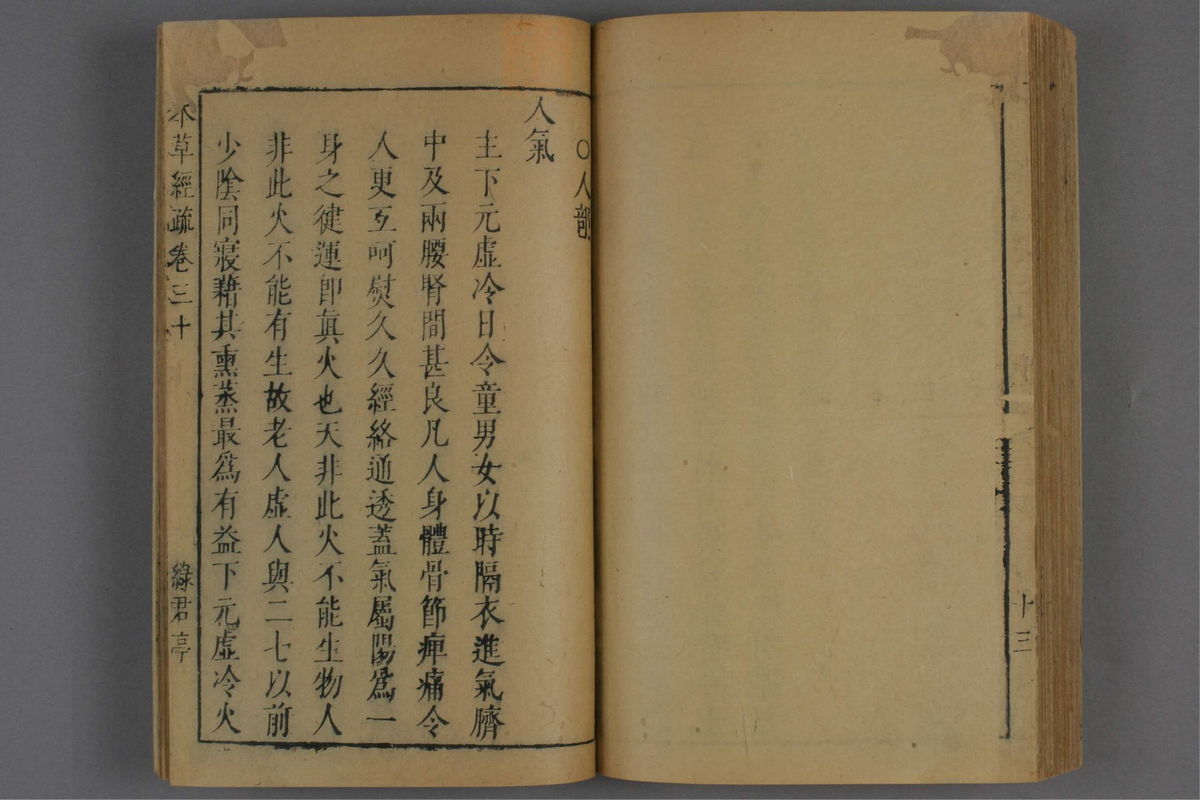 十三
○人部
人氣
主下元虛冷日令童男女以時隔衣進氣臍
中及兩腰腎間甚良凡人身體骨節痺痛令
人更互呵熨久久經絡通透蓋氣屬陽爲一
身之健運卽眞火也天非此火不能生物人
非此火不能有生故老人虛人與二七以前
少陰同寢藉其熏蒸最爲有益下元虛冷火
本草經疏卷三十 綠君亭